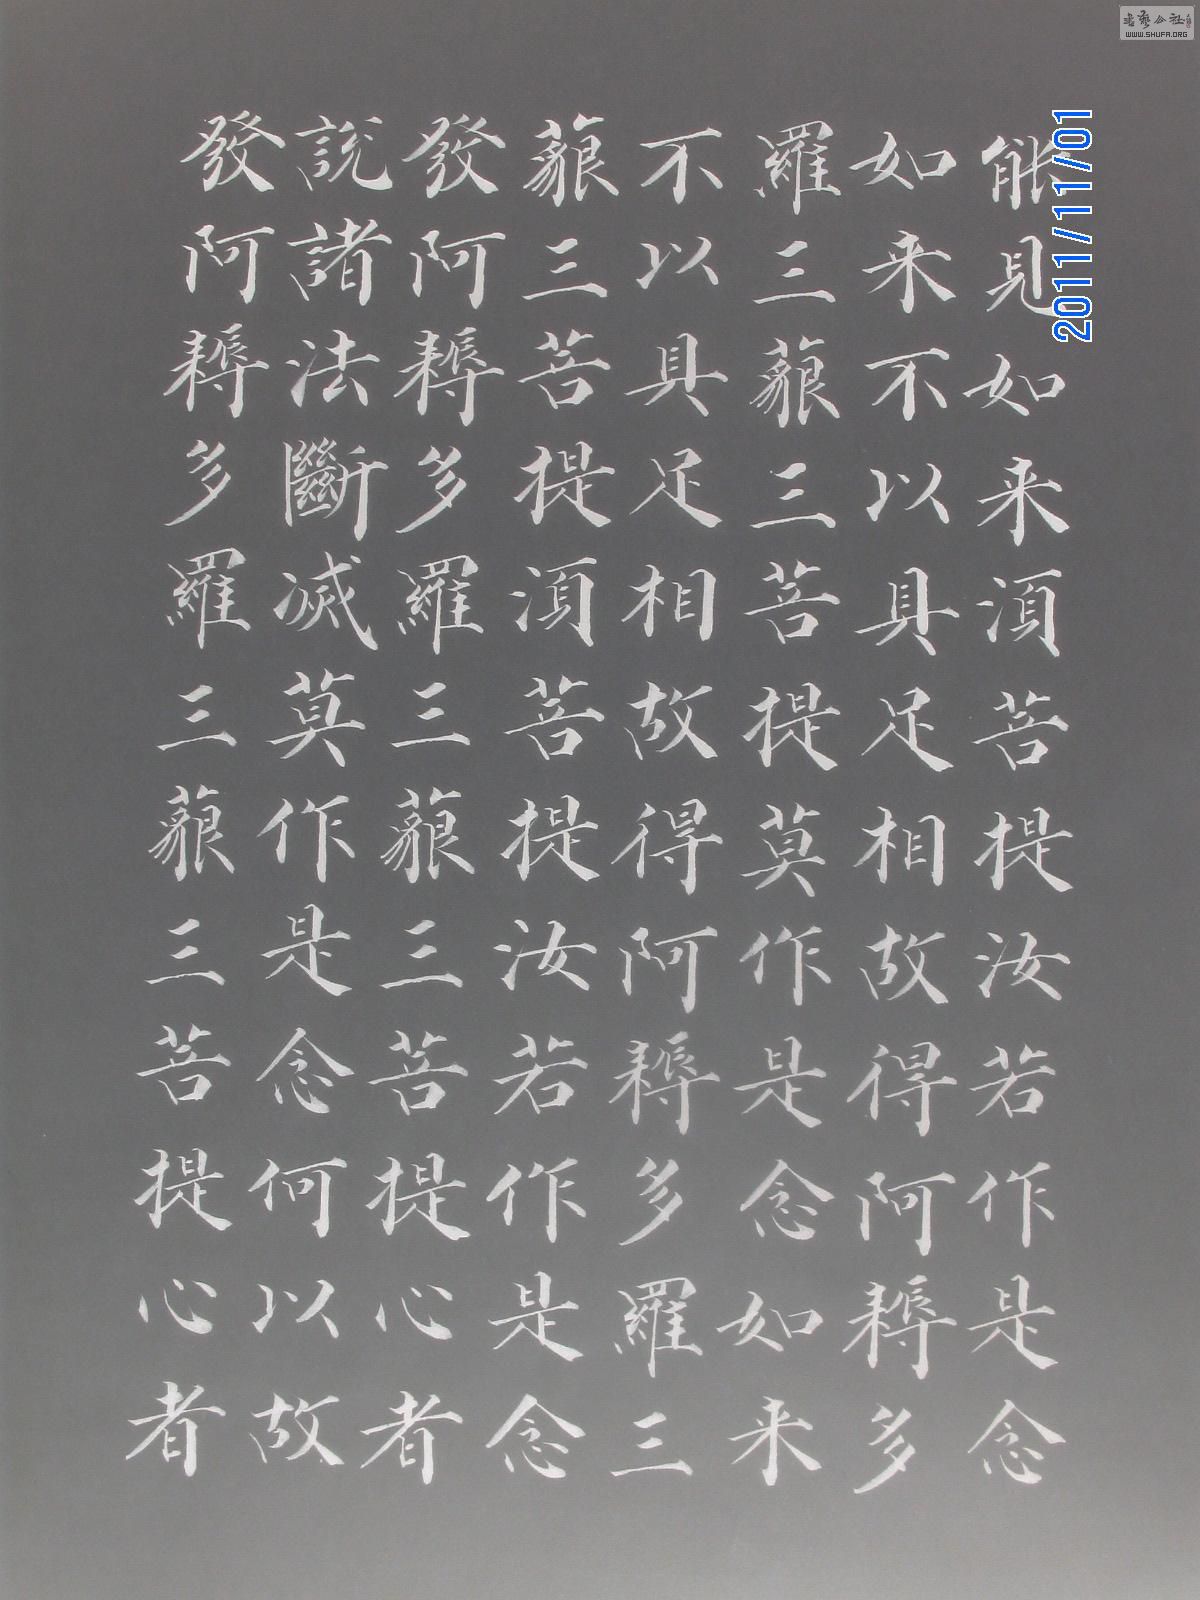 能見如来須菩提汝若作是念
如来不以具足相故得阿耨多
羅三藐三菩提莫作是念如来
不以具足相故得阿耨多羅三
藐三菩提須菩提汝若作是念
發阿耨多羅三藐三菩提心者
說諸法斷滅莫作是念何以故
發阿耨多羅三藐三菩提心者
2011/11/01
書藝公社
WWW.SHUFA.ORG